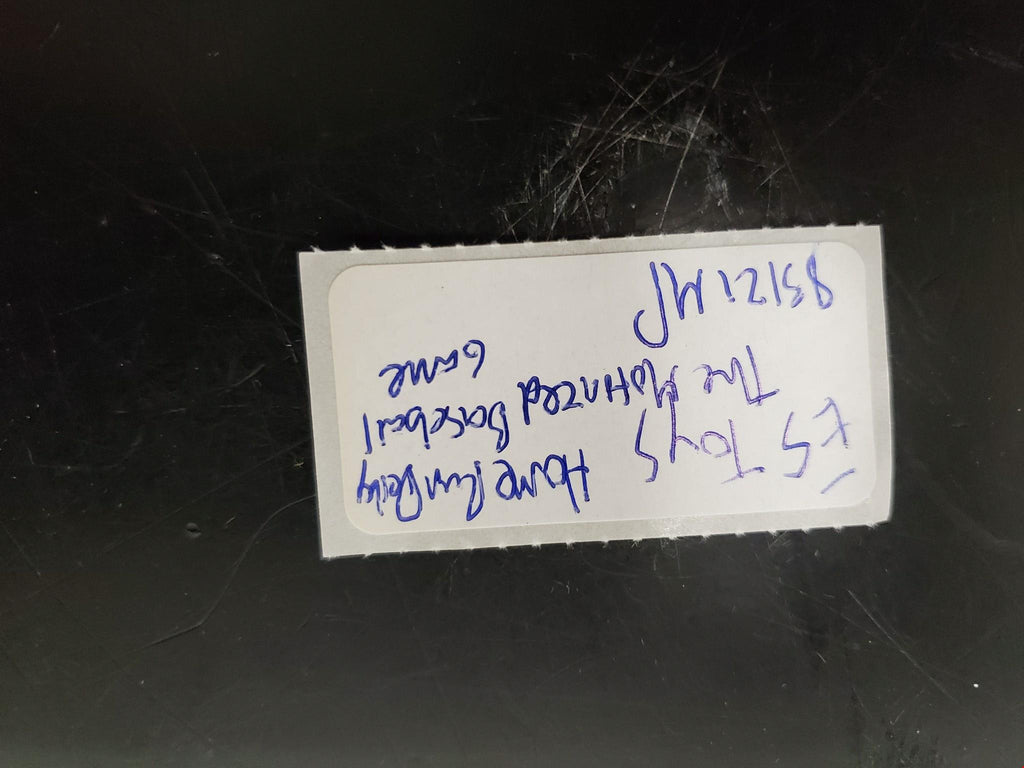 ES Toys Home Run Derby
The Motorized Baseball
Game
83121MP